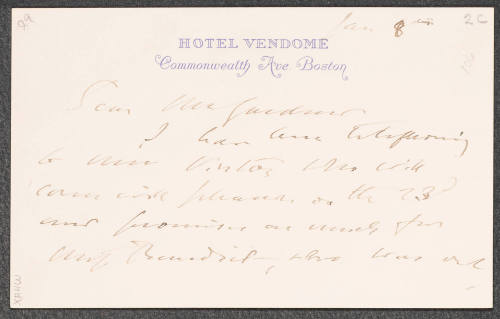 99
Jan 8th
26
HOTEL VENDOME
Commonwealth Ave. Boston
Dear Mrs Gardner
I have been telephoning
to Miss Vinton who will
come with pleasure on the 23d
and promises as much for
Miss Benedict, who was out